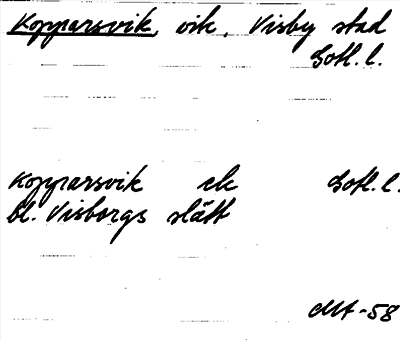 Kopparsvik, vik, Visby stad
Gotl. l.
Kopparsvik ek Gotl. l.
bl. Visborgs slätt
MA -58